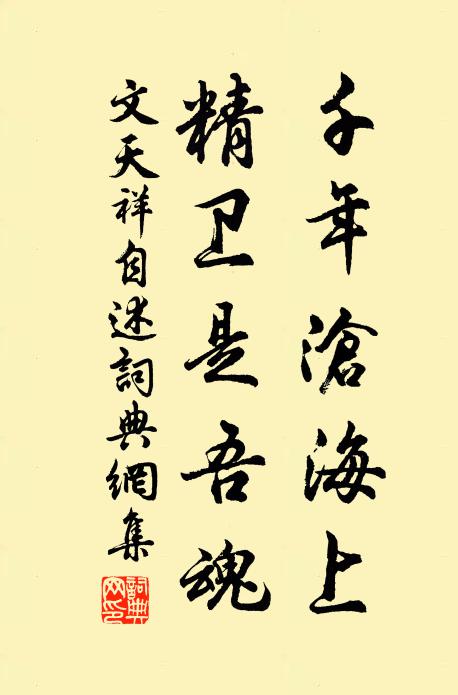 千年滄海上
精卫是吾魂
文天祥自述詞典網集
詞典
网印